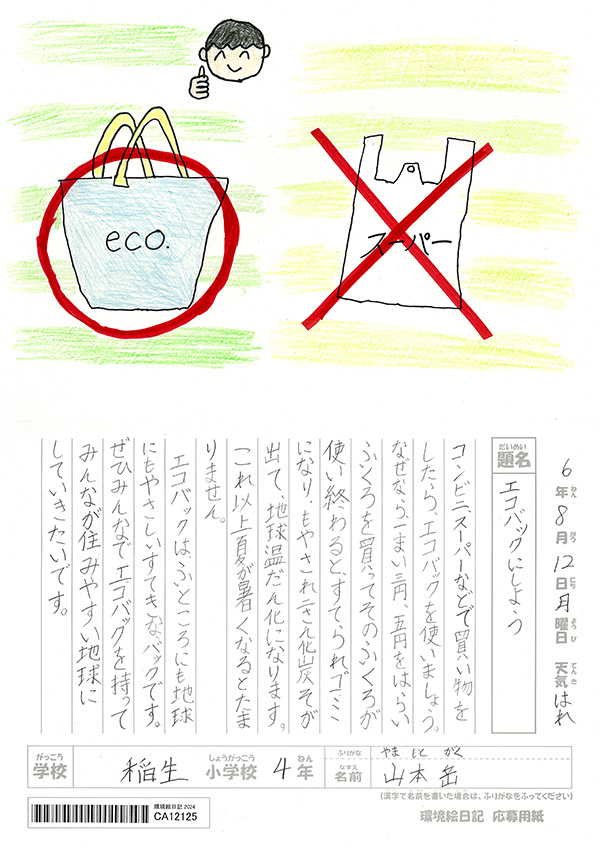 eco.
スーパー
6年8月12日月曜日 天気はれ
ねん がつ にち ようび てんき
だいめい
題名
エコバックにしよう
コンビニ、スーパーなどで買い物を
したら、エコバックを使いましょう。
なぜなら、一まい三円、五円をはらい
ふくろを買ってそのふくろが
使い終わると、すてられゴミ
になり、もやされ二さん化炭そが
出て、地球温だん化になります。
これ以上夏が暑くなるとたま
りません。
エコバックは、ふところにも地球
にもやさしいすてきなバックです。
ぜひみんなでエコバックを持って
みんなが住みやすい地球に
していきたいです。
がっこう しょうがっこう ねん
学校 稲生 小学校 4年
ふりがな やまもと がく
なまえ
名前 山本 岳
(漢字で名前を書いた場合は、ふりがなをふってください)
環境絵日記 2024
CA12125
環境絵日記 応募用紙